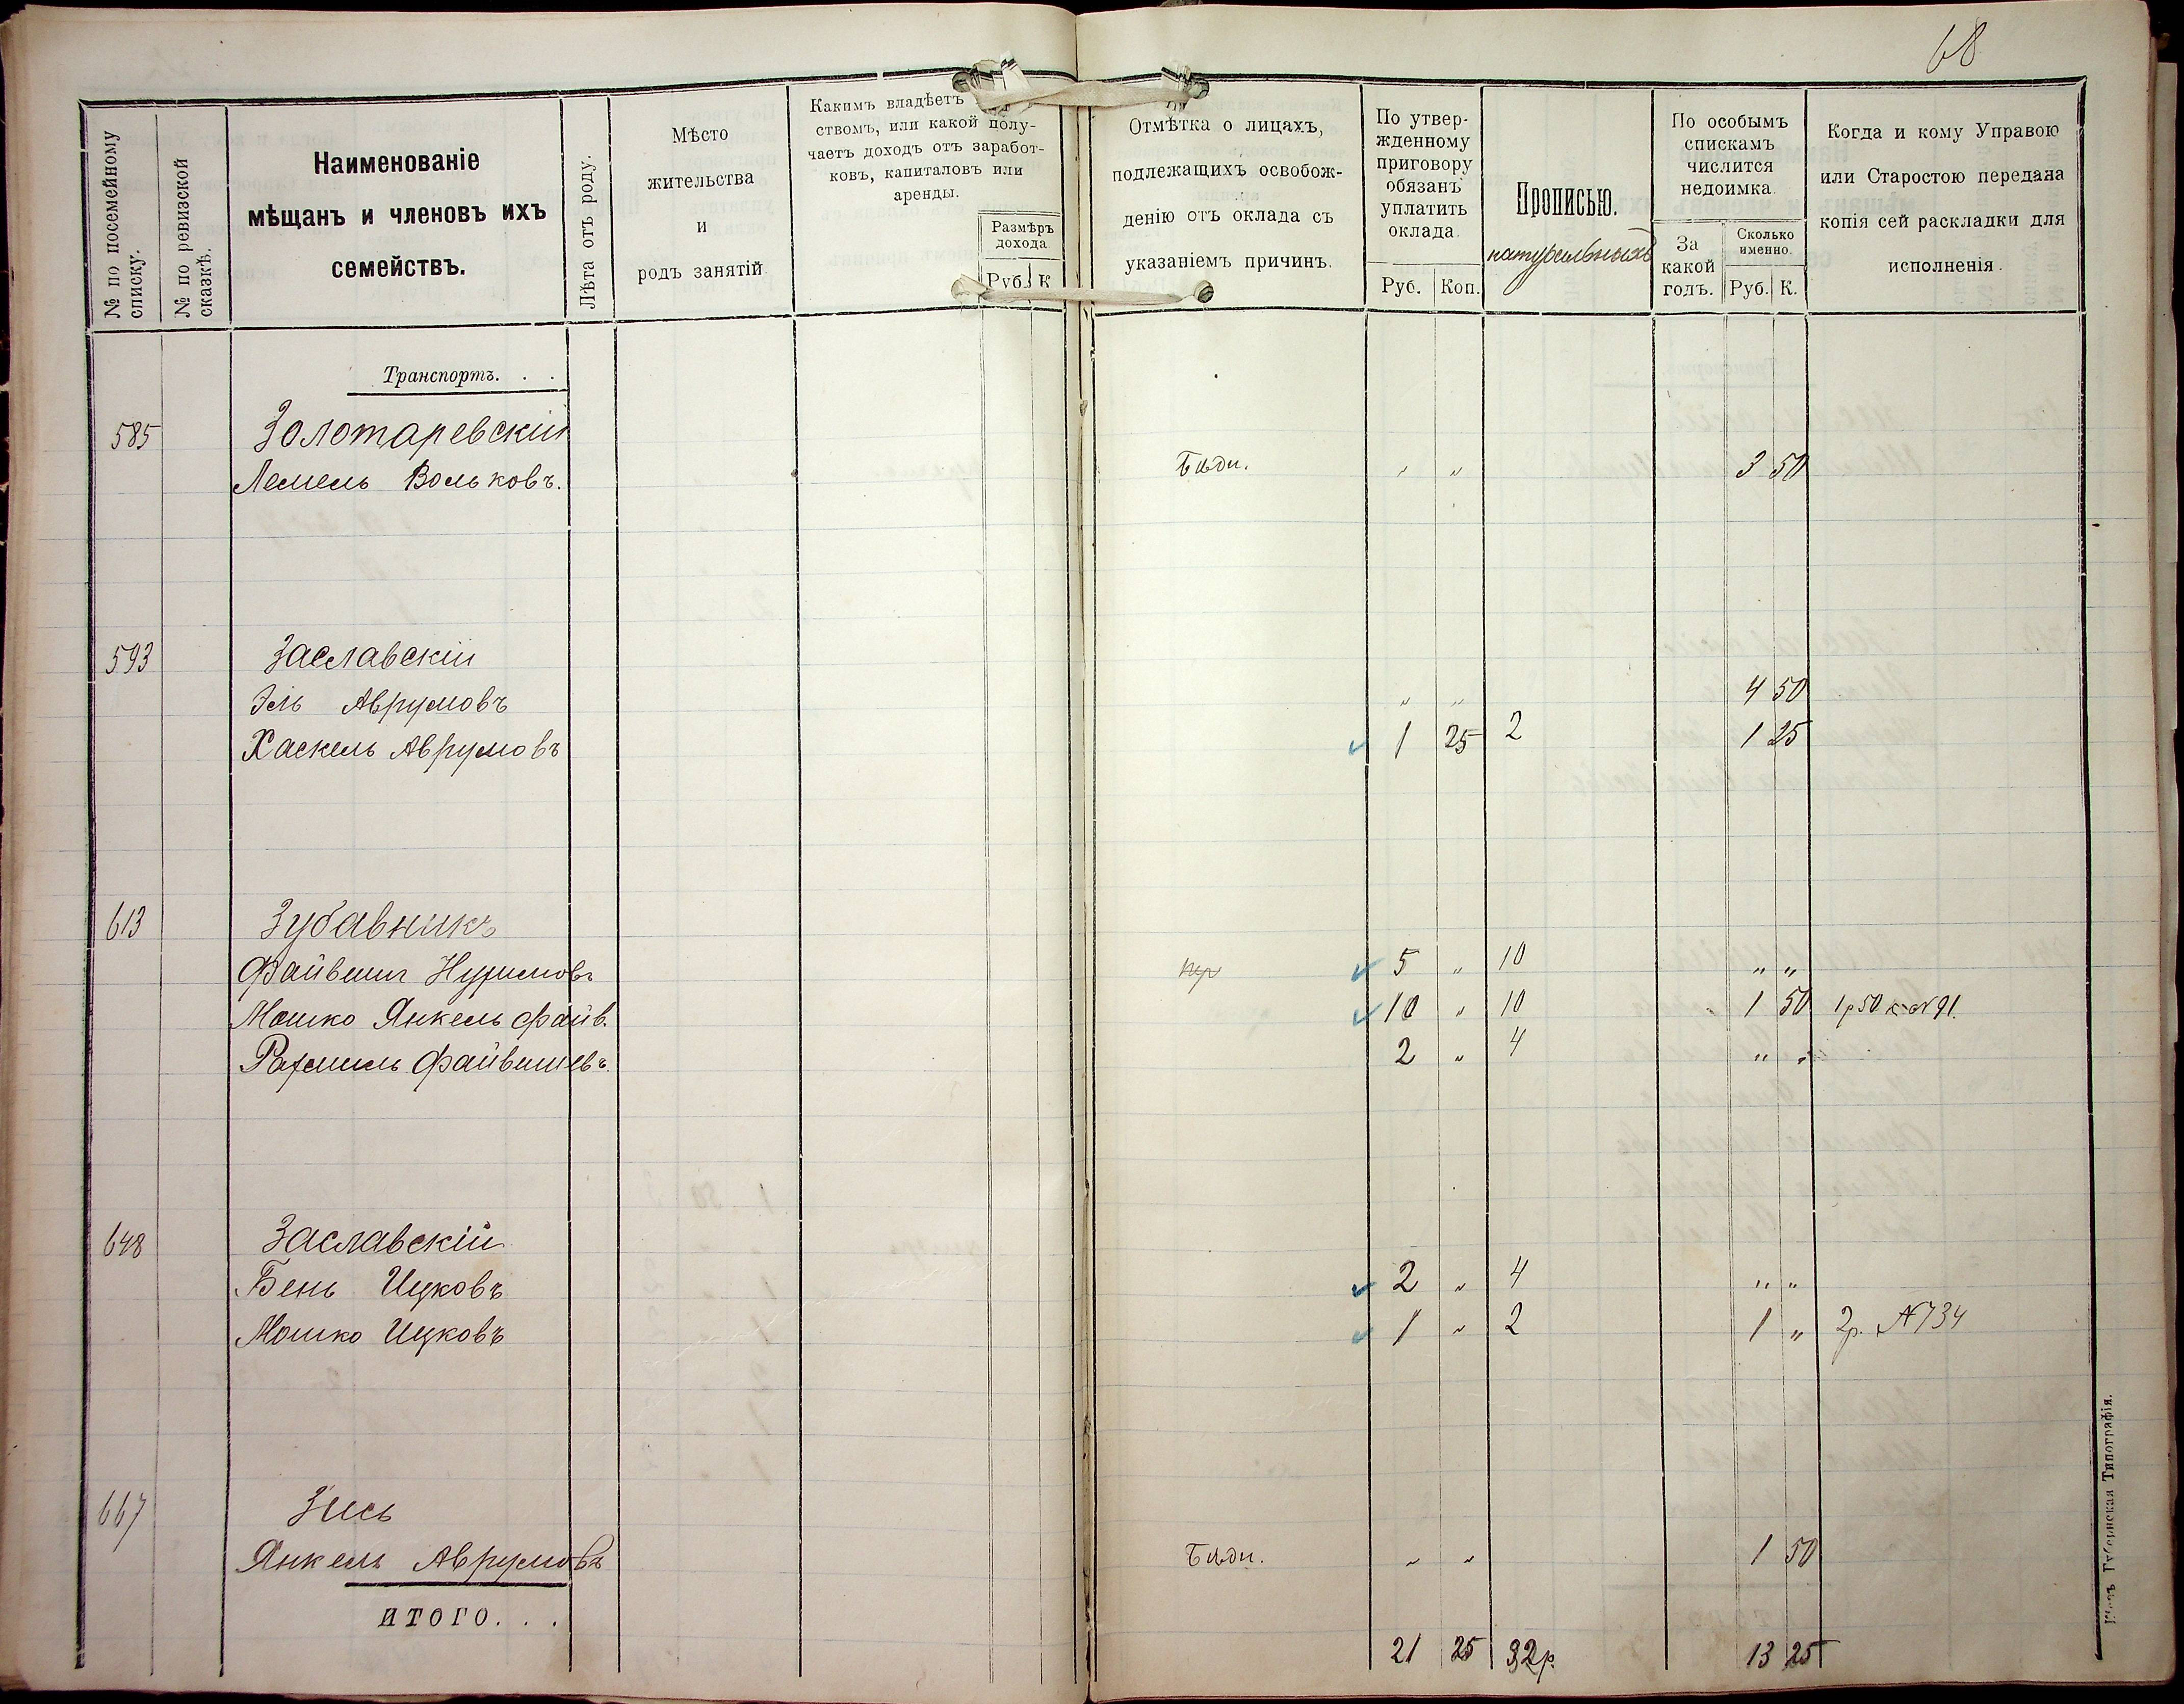 68
№ по посемейному
списку.
№ по ревизской
сказкѣ.
Наименованіе
мѣщанъ и членовъ ихъ
семействъ.
Лѣта отъ роду.
Мѣсто
жительства
и
родъ занятій
Какимъ владѣетъ
ствомъ, или какой полу-
чаетъ доходъ отъ заработ-
ковъ, капиталовъ или
аренды.
Размѣръ
дохода
Руб. К
Отмѣтка о лицахъ,
подлежащихъ освобож-
денію отъ оклада съ
указаніемъ причинъ.
По утвер-
жденному
приговору
обязанъ
уплатить
оклада.
Руб. Коп.
Прописью.
натуральныхъ
По особымъ
спискамъ
числится
недоимка.
За
какой
годъ.
Сколько
именно.
Руб. К.
Когда и кому Управою
или Старостою передана
копія сей раскладки для
исполненія.
Транспортъ. . .
585 Золотаревскій
Лемель Вольковъ. Бѣдн. " " 3 50
593 Заславскій
Эль Аврумовъ " " 4 50
Хаскель Аврумовъ 1 25 2 1 25
613 Зубавникъ
Файвиш 5 " 10 " "
Мошко Янкель Файв. 10 " 10 1 50 1р 50 к №91.
Файвишевъ. 2 " 4 " "
648 Заславскій
Бень Ицковъ 2 " 4 " "
Мошко Ицковъ 1 " 2 1 " 2р. №734
667 Зись
Янкель Аврумовъ Бѣдн. " " 1 50
ИТОГО. . .
21 25 32р. 13 25
Губернская Типографія.